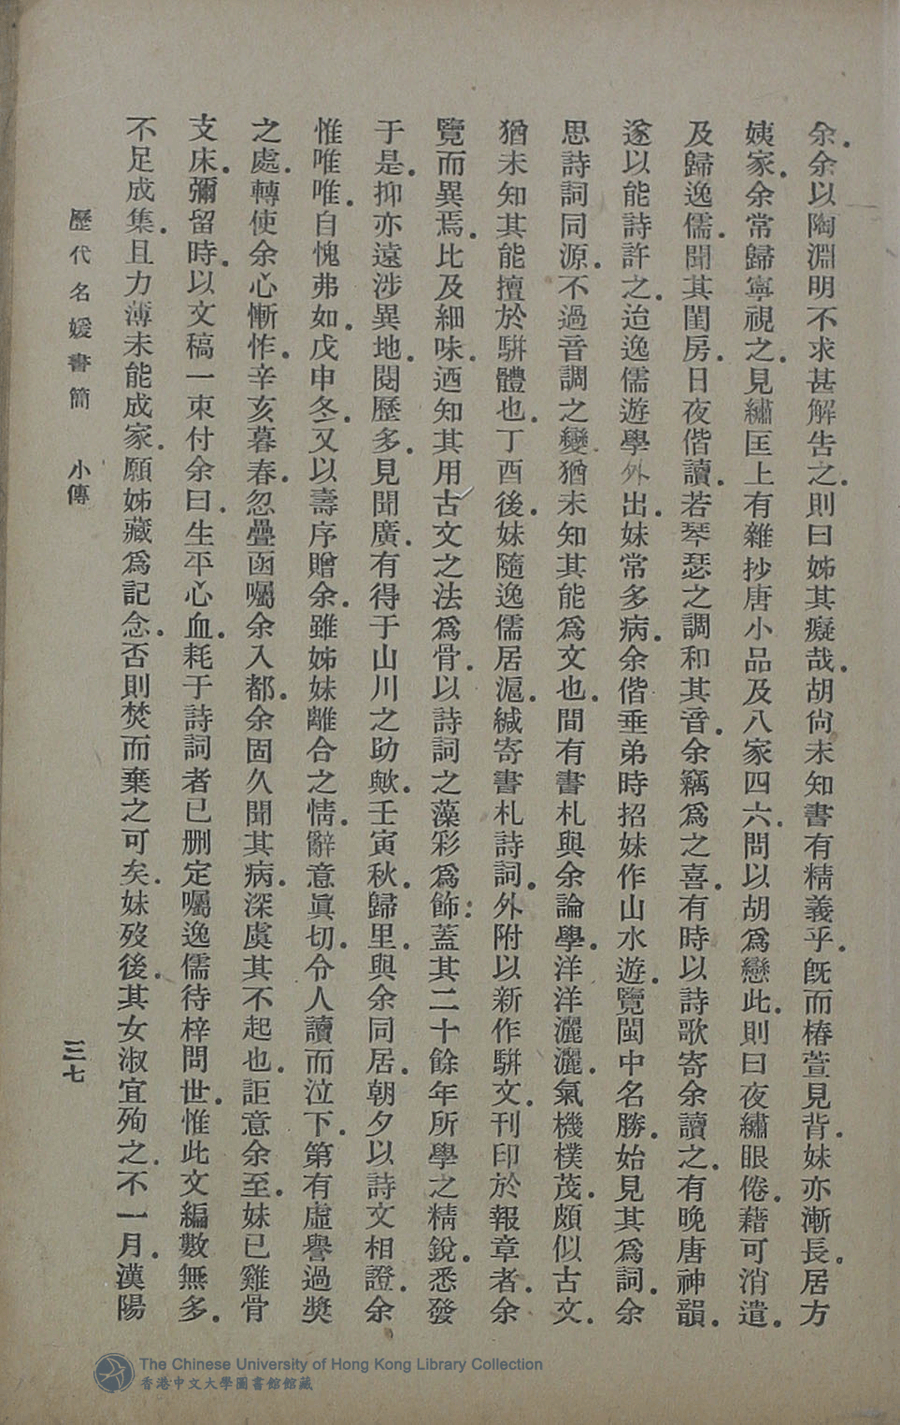 余。余以陶淵明不求甚解告之。則曰姊其癡哉。胡尙未知書有精義乎。旣而椿萱見背。妹亦漸長。居方
姨家。余常歸寧視之。見繡匡上有雜抄唐小品及八家四六。問以胡爲戀此。則曰夜繡眼倦。藉可消遣。
及歸逸儒。聞其閨房。日夜偕讀。若琴瑟之調和其音。余竊爲之喜。有時以詩歌寄余讀之。有晚唐神韻。
遂以能詩許之。迨逸儒遊學外出。妹常多病。余偕垂弟時招妹作山水遊。覽閩中名勝。始見其爲詞。余
思詩詞同源。不過音調之變。猶未知其能爲文也。間有書札與余論學。洋洋灑灑。氣機樸茂。頗似古文。
猶未知其能擅於駢體也。丁酉後。妹隨逸儒居滬。緘寄書札詩詞。外附以新作駢文。刊印於報章者。余
覽而異焉。比及細味。迺知其用古文之法爲骨。以詩詞之藻彩爲飾。蓋其二十餘年所學之精銳。悉發
于是。抑亦遠涉異地。閱歷多。見聞廣。有得于山川之助歟。壬寅秋。歸里。與余同居。朝夕以詩文相證。余
惟唯唯。自愧弗如。戊申冬。又以壽序贈余。雖姊妹離合之情。辭意眞切。令人讀而泣下。第有虛譽過獎
之處。轉使余心慚怍。辛亥暮春。忽疊函囑余入都。余固久聞其病。深虞其不起也。詎意余至。妹已雞骨
支床。彌留時。以文稿一束付余曰。生平心血。耗于詩詞者已删定囑逸儒待梓問世。惟此文編數無多。
不足成集。且力薄未能成家。願姊藏爲記念。否則焚而棄之可矣。妹歿後。其女淑宜殉之。不一月。漢陽
歷代名媛書簡 小傳 三七
The Chinese University of Hong Kong Library Collection
香港中文大學圖書館館藏